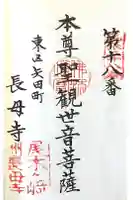 第十八番
本尊聖観世音菩薩
東区矢田町
長母寺